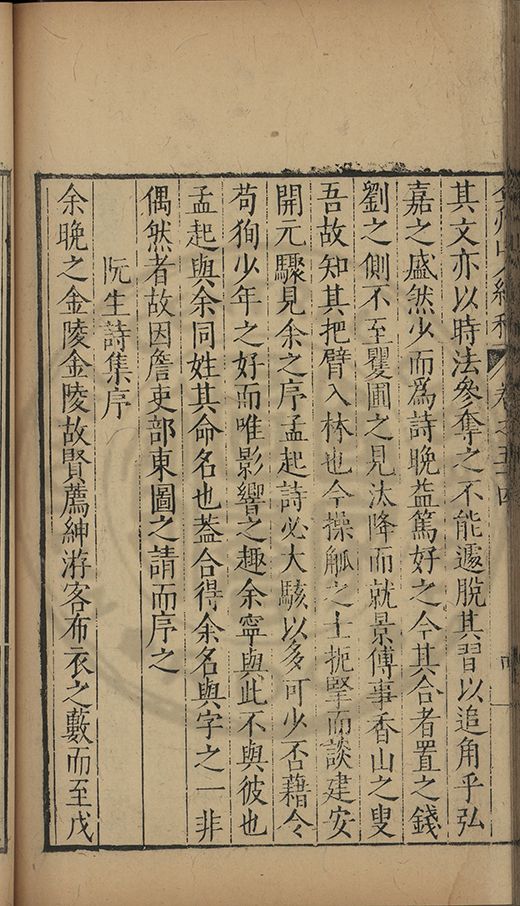 州山人續稿 卷之五十四
其文亦以時法參奪之不能遽脫其習以追角乎弘
嘉之盛然少而爲詩晚益篤好之今其合者置之錢
劉之側不至矍圃之見汰降而就景傅事香山之叟
吾故知其把臂入林也今操觚之士扼掔而談建安
開元驟見余之序孟起詩必大駭以多可少否藉令
苟狥少年之好而唯影響之趣余寧與此不與彼也
孟起與余同姓其命名也葢合得余名與字之一非
偶然者故因詹吏部東圖之請而序之
阮生詩集序
余晚之金陵金陵故賢薦紳游客布衣之藪而至戊